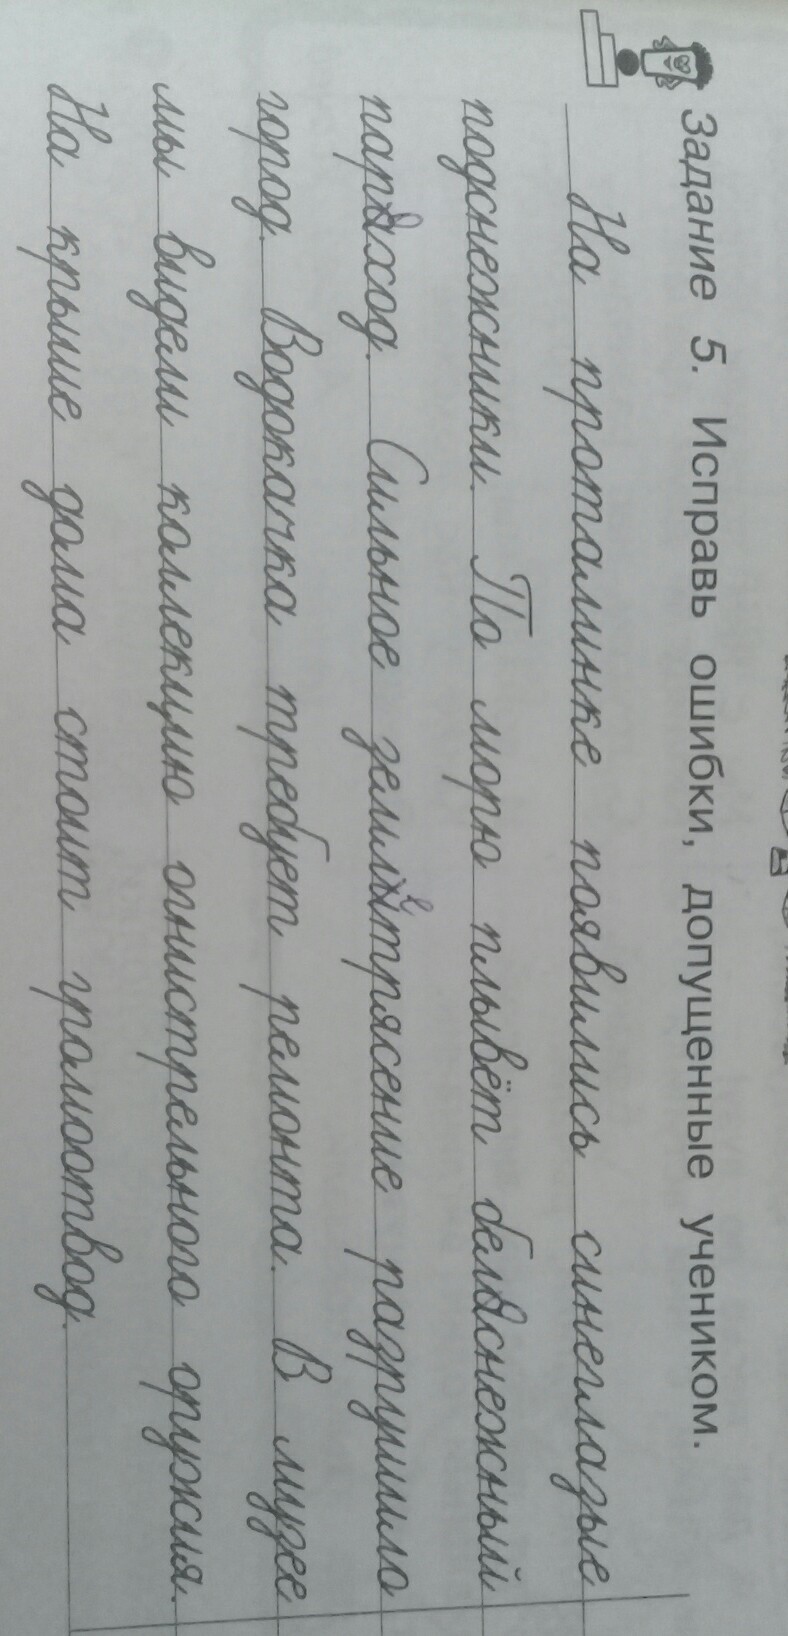 Задание 5. Исправь ошибки, допущенные учеником.
На проталинке появились синеглазые
подснежники. По морю плывёт белоснежный
пароход. Сильное землетрясение разрушило
город. Водокачка требует ремонта. В музее
мы видели коллекцию огнистрельного оружия.
На крыше дома стоит громоотвод.